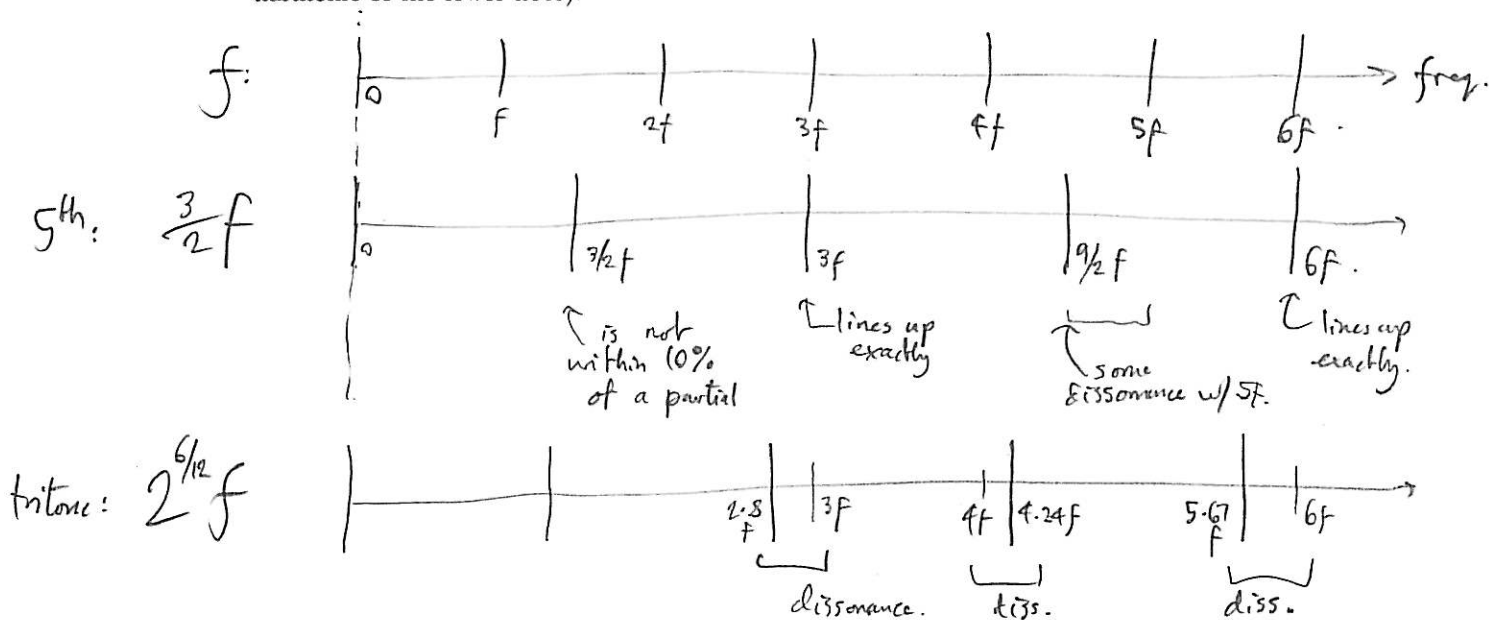 f:
0 f 2f 3f 4f 5f 6f . freq.
5th: 3/2 f
0 3/2 f 3f 9/2 f 6f.
is not within 10% of a partial
lines up exactly
some dissonance w/ 5f.
lines up exactly.
tritone: 2^6/12 f
2.8 f 3f 4f 4.24f 5.67 f 6f
dissonance. diss. diss.